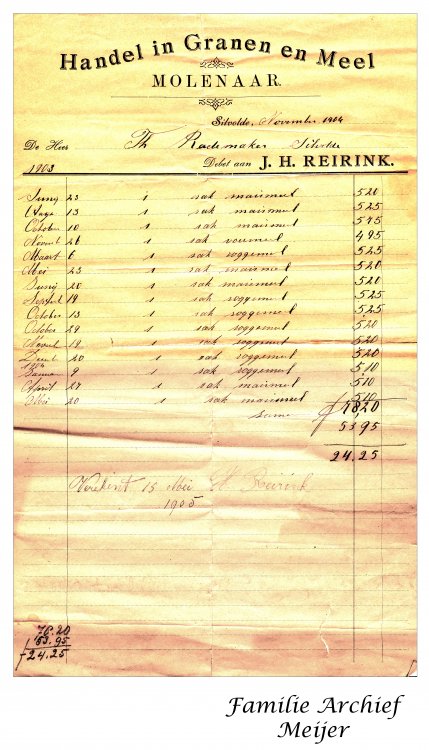 Handel in Granen en Meel
MOLENAAR.
Silvolde, November 1904
De Heer Th Rademaker Silvolde
1903 Debet aan J. H. REIRINK.
Juny 23 1 sak maismeel 5,20
13 1 sak maismeel 5.25
October 10 1 sak maismeel 5.75
Novemb 26 1 sak voermeel 4.95
Maart 6 1 sak roggemeel 5.25
Mei 23 1 sak maismeel 5.20
Juny 20 1 sak maismeel 5.20
Septemb 19 1 sak roggemeel 5.25
October 13 1 sak roggemeel 5.25
October 29 1 sak roggemeel 5.20
Novemb 19 1 sak roggemeel 5.20
Decemb 20 1 sak roggemeel 5.20
1904
Januari 9 1 sak roggemeel 5.10
April 27 1 sak maismeel 5.10
Mei 20 1 sak maismeel 5.10
Some 78,20
53.95
24.25
Verekent 15 Mei JH Reirink
1905
78.20
53.95
24.25
Familie Archief
Meijer